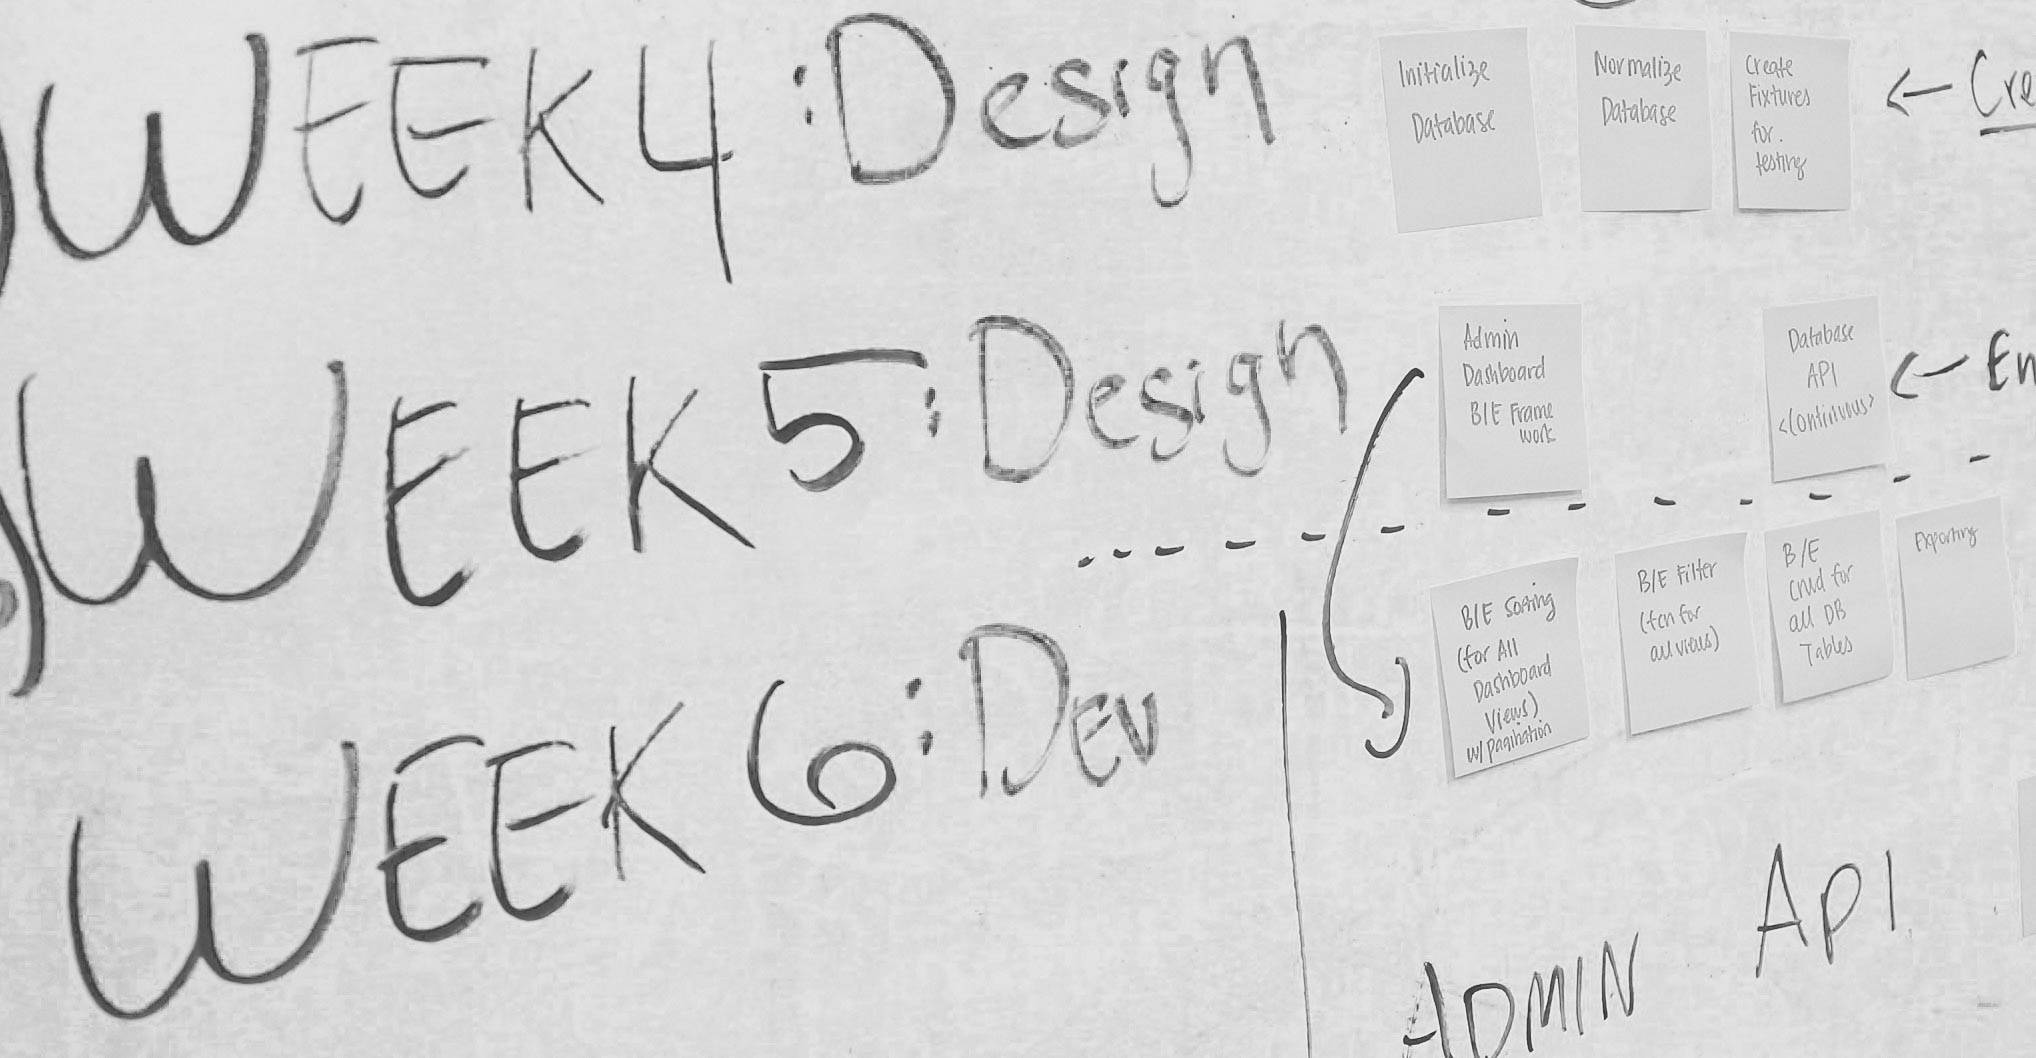 WEEK 4 : Design
Initialize
Database
Normalize
Database
Create
Fixtures
for.
testing
← Cre
WEEK 5 : Design
Admin
Dashboard
B/E Frame
work
Database
API
<Continuous>
← En
WEEK 6 : DEV
B/E Sorting
(for All
Dashboard
Views)
w/ pagination
B/E Filter
(fcn for
all views)
B/E
crud for
all DB
Tables
Exporting
ADMIN
API